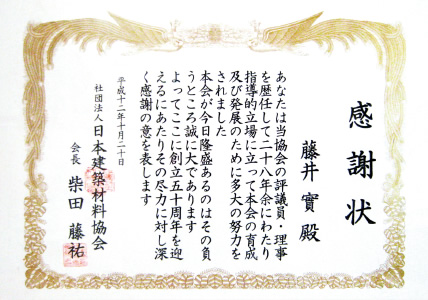 感謝状
藤井 實 殿
あなたは当協会の評議員・理事
を歴任して二十八年余にわたり
指導的立場に立って本会の育成
及び発展のために多大の努力を
されました
本会が今日隆盛あるのはその負
うところ誠に大であります
よってここに創立五十周年を迎
えるにあたりその尽力に対し深
く感謝の意を表します
平成十二年十月二十日
社団法人 日本建築材料協会
会長 柴田 藤祐